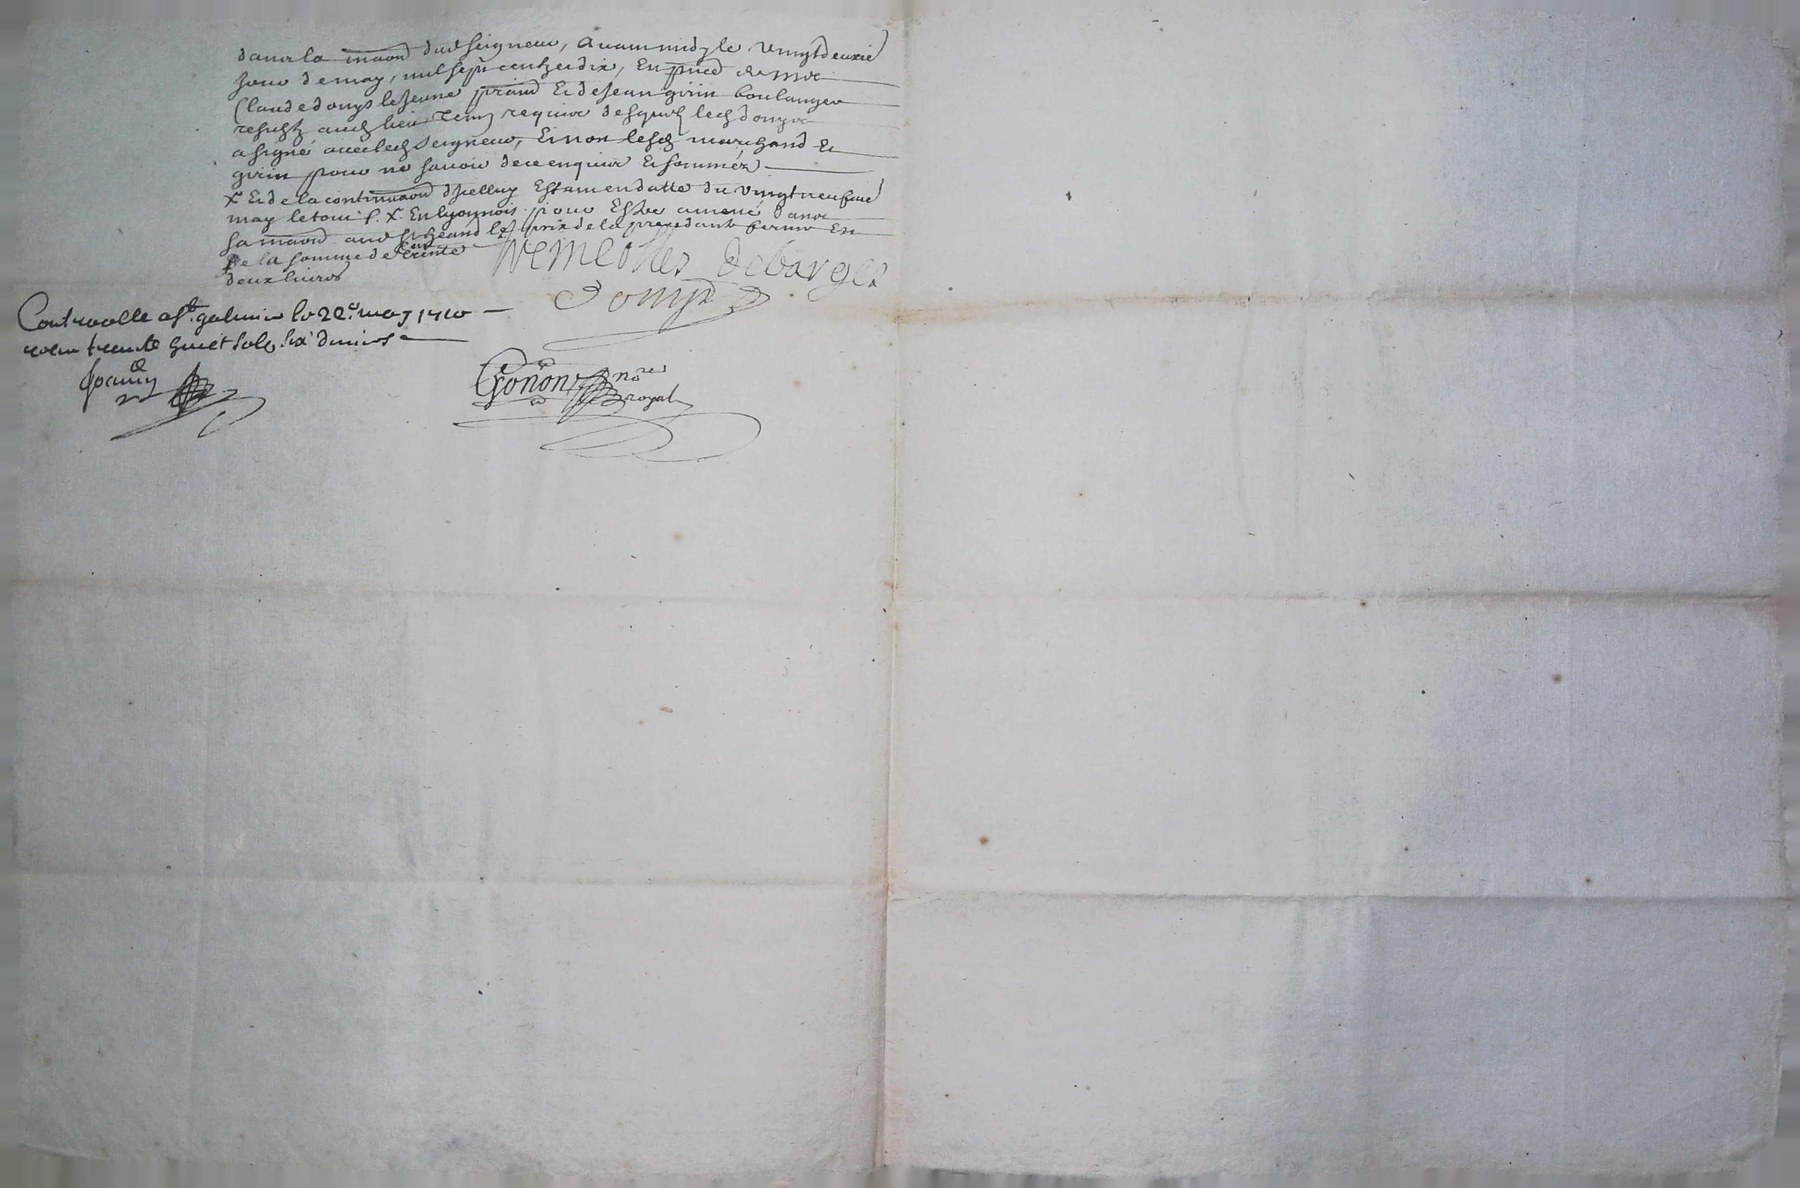 dans la maon dud seigneur, avant midy le vingtdeuxie
jour de may, mil sept cent et dix, En pnce de Mre
Claude donys le Jeune prand Et de Jean girin boulanger
resid aud lieu tem requis desquels led donys
a signé avec led Seigneur, Et non lesd marchand Et
girin pour ne savoir de ce enquis Et sommés
X Et de la continuaon d'icelluy Estamendatte du vingtneufme
may le tout f. X. En lyonnois pour Estre amené dans
sa maon le prix de la precedante ferme En
de la somme de trente
deux livres
debarges
donys
Controolle a st. galmier le 22e. may 1710
receu trente huict sols six deniers
Gonon nore
royal